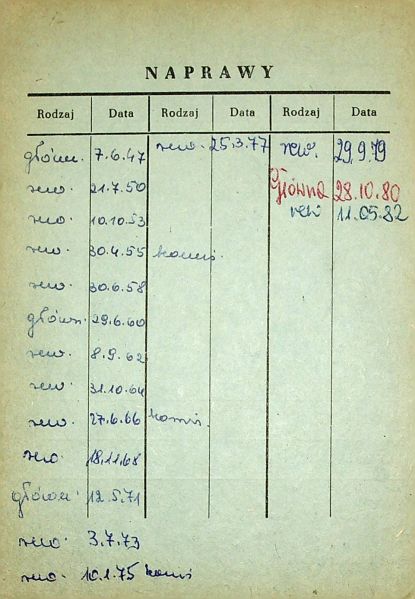 NAPRAWY
Rodzaj Data Rodzaj Data Rodzaj Data
główn. 7.6.47 rew. 25.3.77 rew. 29.9.79
rew. 21.7.50 Główna 28.10.80
rew. 10.10.53 rew 11.05.82
rew. 30.4.55 komis.
rew. 30.6.58
główn. 29.6.60
rew. 8.9.62
rew. 31.10.64
rew. 27.6.66 komis.
rew. 18.11.68
główn. 12.5.71
rew. 3.7.73
rew. 10.1.75 komis